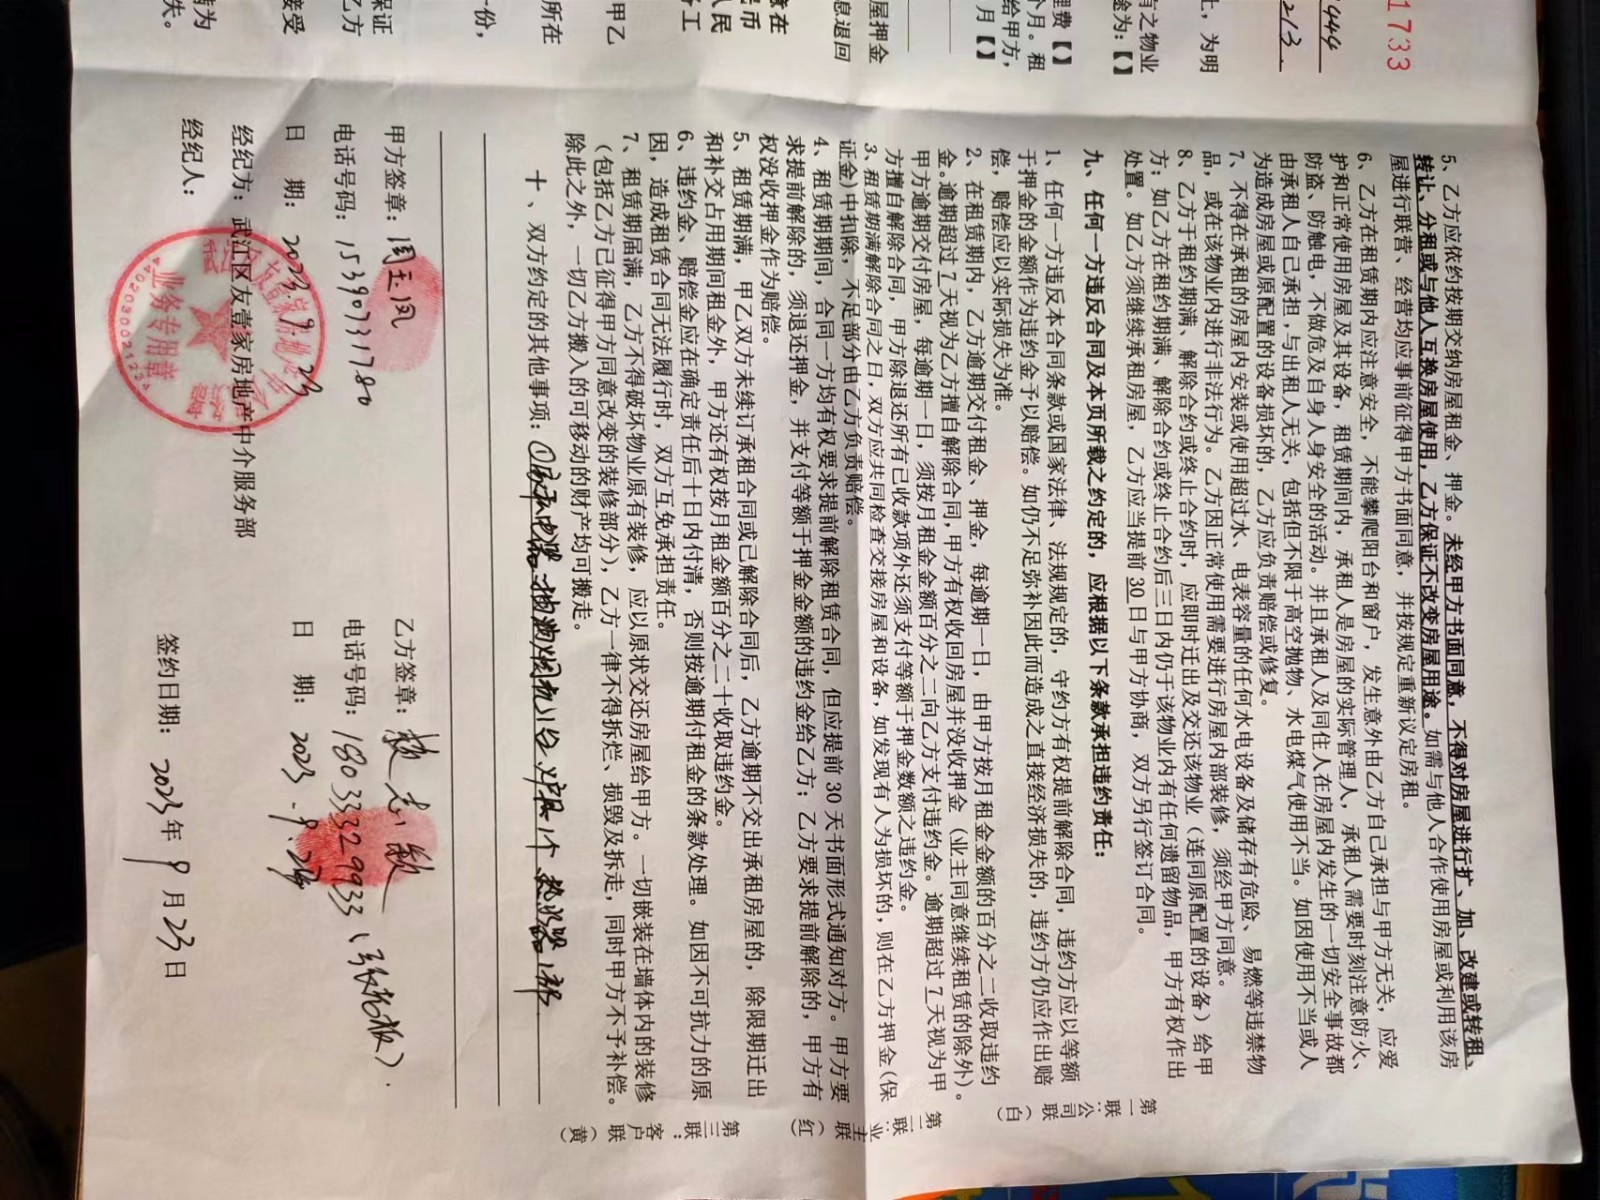 1733
444
213
5、乙方应依约按期交纳房屋租金、押金。未经甲方书面同意，不得对房屋进行扩、加、改建或转租、
转让、分租或与他人互换房屋使用，乙方保证不改变房屋用途。如需与他人合作使用房屋或利用该房
屋进行联营、经营均应事前征得甲方书面同意，并按规定重新议定房租。
6、乙方在租赁期内应注意安全，不能攀爬阳台和窗户，发生意外由乙方自己承担与甲方无关，应爱
护和正常使用房屋及其设备，租赁期间内，承租人是房屋的实际管理人，承租人需要时刻注意防火、
防盗、防触电，不做危及自身人身安全的活动。并且承租人及同住人在房屋内发生的一切安全事故都
由承租人自己承担，与出租人无关，包括但不限于高空抛物、水电煤气使用不当。如因使用不当或人
为造成房屋或原配置的设备损坏的，乙方应负责赔偿或修复。
7、不得在承租的房屋内安装或使用超过水、电表容量的任何水电设备及储存有危险、易燃等违禁物
品，或在该物业内进行非法行为。乙方因正常使用需要进行房屋内部装修，须经甲方同意。
8、乙方于租约期满、解除合约或终止合约时，应即时迁出及交还该物业（连同原配置的设备）给甲
方；如乙方在租约期满、解除合约或终止合约后三日内仍于该物业内有任何遗留物品，甲方有权作出
处置。如乙方须继续承租房屋，乙方应当提前30日与甲方协商，双方另行签订合同。
九、任何一方违反合同及本页所载之约定的，应根据以下条款承担违约责任：
1、任何一方违反本合同条款或国家法律、法规规定的，守约方有权提前解除合同，违约方应以等额
于押金的金额作为违约金予以赔偿。如仍不足弥补因此而造成之直接经济损失的，违约方仍应作出赔
偿，赔偿应以实际损失为准。
2、在租赁期内，乙方逾期交付租金、押金，每逾期一日，由甲方按月租金金额的百分之二收取违约
金。逾期超过7天视为乙方擅自解除合同，甲方有权收回房屋并没收押金（业主同意继续租赁的除外）。
甲方逾期交付房屋，每逾期一日，须按月租金金额百分之二向乙方支付违约金。逾期超过7天视为甲
方擅自解除合同，甲方除退还所有已收款项外还须支付等额于押金数额之违约金。
3、租赁期满解除合同之日，双方应共同检查交接房屋和设备，如发现有人为损坏的，则在乙方押金（保
证金）中扣除，不足部分由乙方负责赔偿。
4、租赁期期间，合同一方均有权要求提前解除租赁合同，但应提前30天书面形式通知对方。甲方要
求提前解除的，须退还押金，并支付等额于押金金额的违约金给乙方；乙方要求提前解除的，甲方有
权没收押金作为赔偿。
5、租赁期满，甲乙双方未续订承租合同或已解除合同后，乙方逾期不交出承租房屋的，除限期迁出
和补交占用期间租金外，甲方还有权按月租金额百分之二十收取违约金。
6、违约金、赔偿金应在确定责任后十日内付清，否则按逾期付租金的条款处理。如因不可抗力的原
因，造成租赁合同无法履行时，双方互免承担责任。
7、租赁期届满，乙方不得破坏物业原有装修，应以原状交还房屋给甲方。一切嵌装在墙体内的装修
（包括乙方已征得甲方同意改变的装修部分），乙方一律不得拆烂、损毁及拆走，同时甲方不予补偿。
除此之外，一切乙方搬入的可移动的财产均可搬走。
十、双方约定的其他事项：
甲方签章：周玉凤
电话号码：15390731780
日 期：2023.9.23
经纪方：武江区友壹家房地产中介服务部
经纪人：
乙方签章：
电话号码：18033329933（张老板）.
日 期：2023.9.23
签约日期：2023年9月23日
业务专用章
4402030021234
第一联：公司联（白）
第二联：业主联（红）
第三联：客户联（黄）